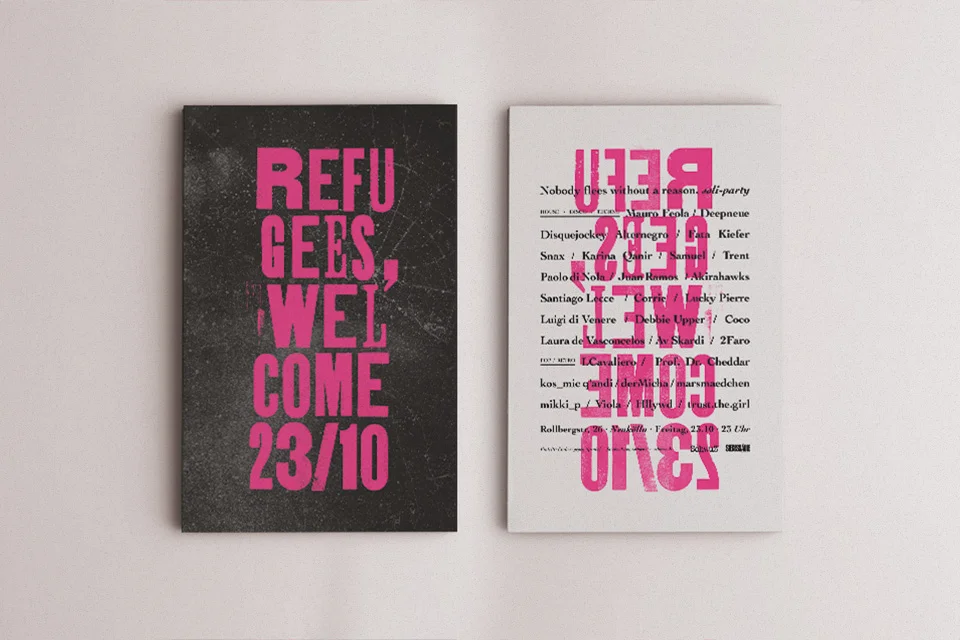 REFU
GEES,
WEL
COME
23/10
REFU
GEES,
WEL
COME
23/10
Nobody flees without a reason. soli-party
HOUSE · DISCO · Mauro Feola / Deepneue
Disquejockey Alternegro / Fata Kiefer
Snax / Karina Qanir / Samuel / Trent
Paolo di Nola / Juan Ramos / Akirahawks
Santiago Lecce / Corrie / Lucky Pierre
Luigi di Venere / Debbie Upper / Coco
Laura de Vasconcelos / Av Skardi / 2Faro
POP / RETRO I.Cavaliero / Prof. Dr. Cheddar
kos_mic q'andi / derMicha / marsmaedchen
mikki_p / Viola / Hllywd / trust.the.girl
Rollbergstr. 26 · Neukölln · Freitag, 23.10 · 23 Uhr